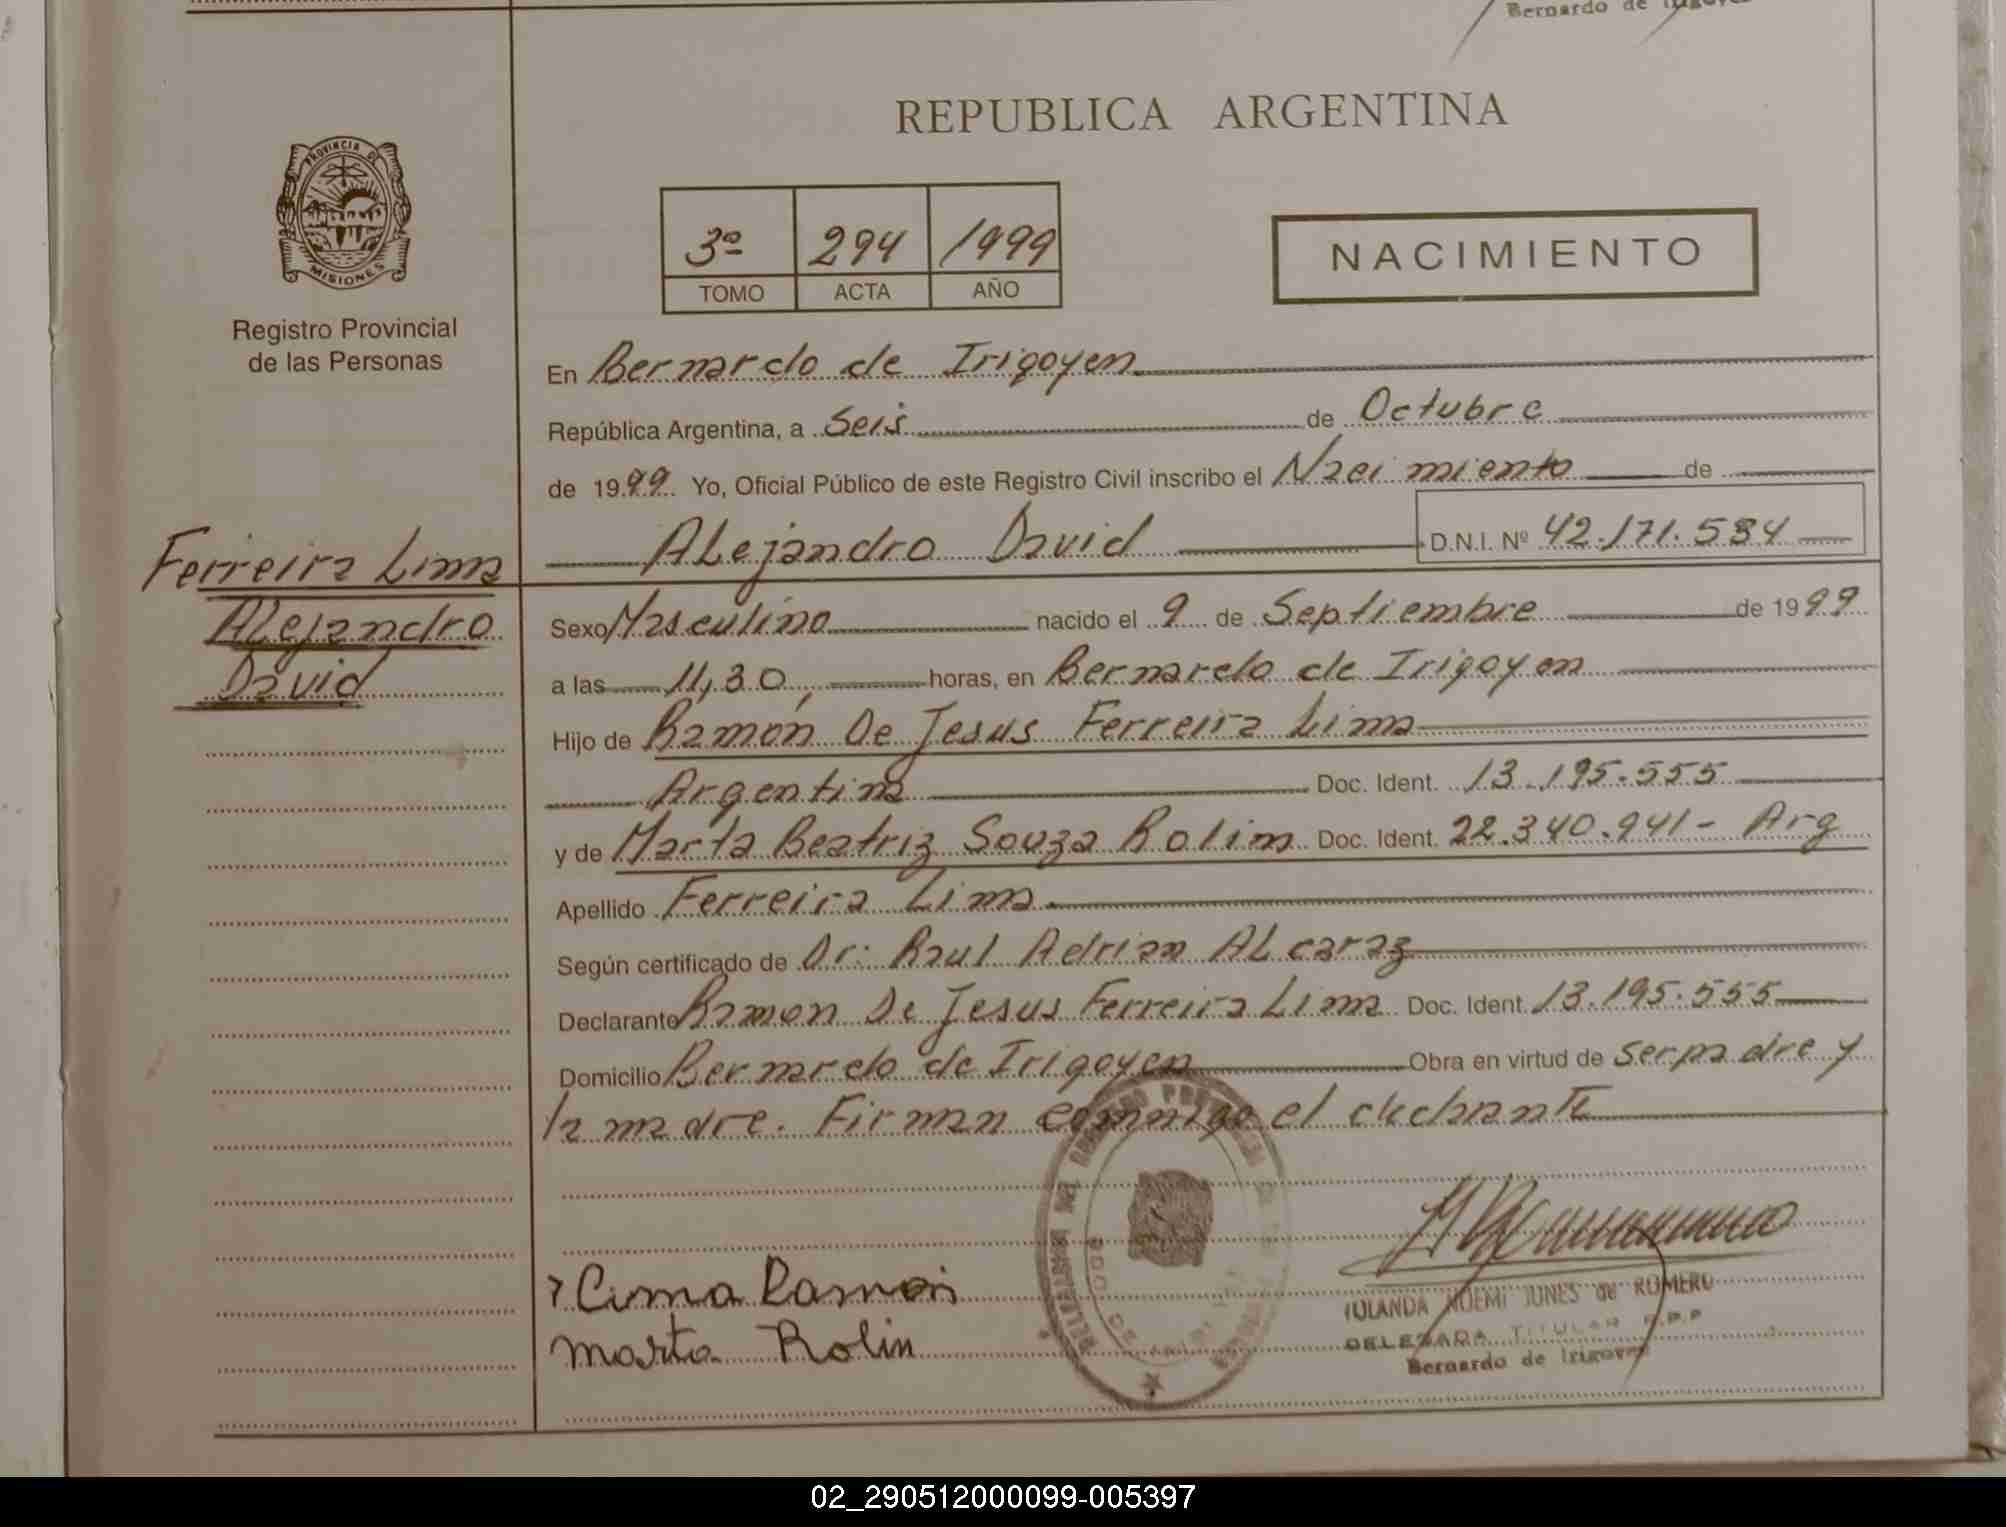 Bernardo de Irigoyen
REPUBLICA ARGENTINA
PROVINCIA DE
MISIONES
Registro Provincial
de las Personas
3º 294 1999
TOMO ACTA AÑO
NACIMIENTO
En Bernardo de Irigoyen
República Argentina, a Seis de Octubre
de 1999 Yo, Oficial Público de este Registro Civil inscribo el Nacimiento de
Alejandro David D.N.I. Nº 42.171.534
Ferreira Lima
Alejandro
David
Sexo Masculino nacido el 9 de Septiembre de 1999
a las 11,30, horas, en Bernardo de Irigoyen
Hijo de Ramón De Jesus Ferreira Lima
Argentina Doc. Ident. 13.195.555
y de Marta Beatriz Souza Rolim Doc. Ident. 22.340.941 - Arg
Apellido Ferreira Lima
Según certificado de Dr: Raul Adrian Alcaraz
Declarante Ramon De Jesus Ferreira Lima Doc. Ident. 13.195.555
Domicilio Bernardo de Irigoyen Obra en virtud de ser padre y
la madre. Firman conmigo el declarante
Ramon
Marta Rolin
YOLANDA NOEMI JUNES de ROMERO
DELEGADA TITULAR R.P.P
Bernardo de Irigoyen
02_290512000099-005397